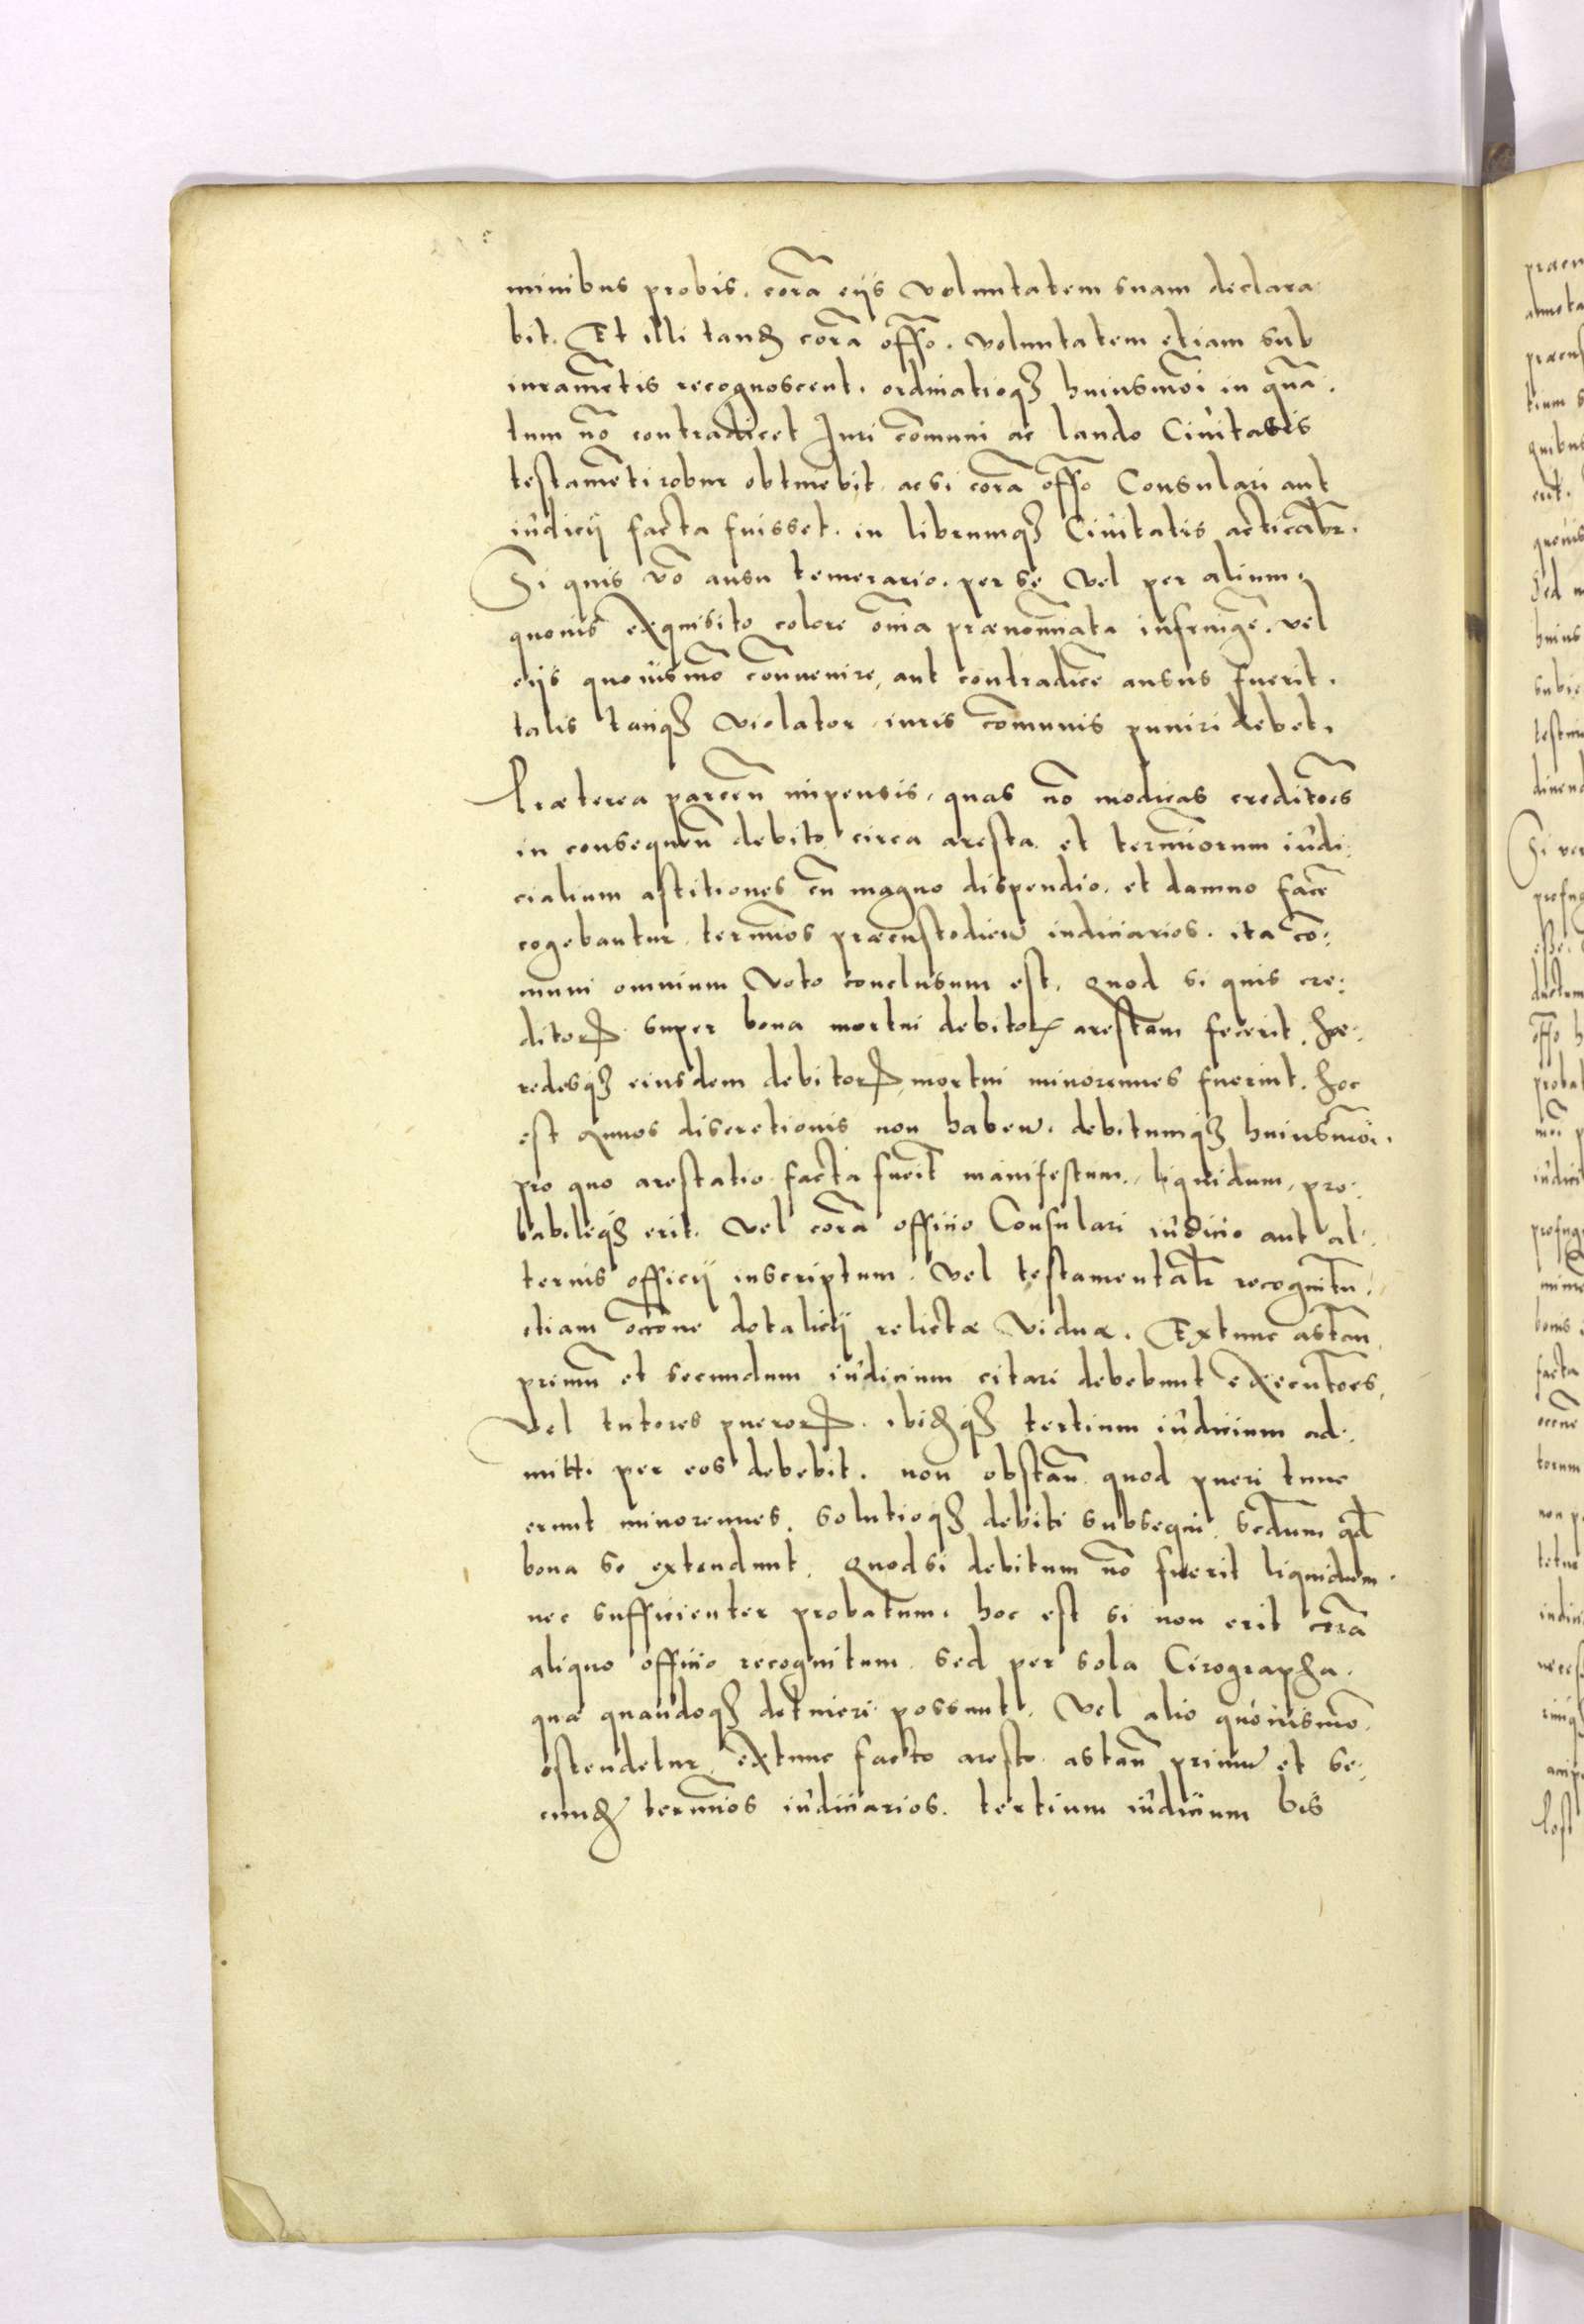 minibus probis. corã eijs voluntatem suam declara
bit. Et illi tandẽ corã offõ. voluntatem etiam sub
iuramẽtis recognoscent. ordinatioqȝ huiusmõi in quã.
tum nõ contradicet Iuri cõmuni ac laudo Ciuitatis
testamẽti robur obtinebit. ac si corã offõ Consulari aut
iudicij facta fuisset. in librumqȝ Ciuitatis acticabr̃.
Si quis võ ausu temerario. per se vel per alium.
quouis exquisito colore om̃ia prænomĩata infringẽ. vel
eijs quouismõ conuenire, aut contradicẽ ausus fuerit.
talis tanqȝ violator iuris cõmunis puniri debet.
Præterea parcen̄ impensis, quas nõ modicas creditões
in consequen̄ debito circa aresta et termĩorum iudi.
cialium astitiones cũ magno dispendio. et damno facẽ
cogebantur. termĩos præcustodien̄ iudiciarios. ita cõ:
muni omnium voto conclusum est. Quod si quis cre:
ditorꝝ super bona mortui debitoris arestam fecerit. hæ.
redesqȝ eiusdem debitorꝝ mortui minorennes fuerint. hoc
est annos discretionis non haben̄. debitumqȝ huiusmõi.
pro quo arestatio facta fuerit manifestum, liquidum, pro.
babileqȝ erit. vel corã officio Consulari iudicio aut al.
terius officij inscriptum. vel testamentalr̃ recognitũ.
etiam occõne dotalicij relictæ viduæ. Extunc astan̄
primũ et secundum iudicium citari debebunt executões.
Vel tutores puerorꝝ. ibidẽqȝ tertium iudicium ad.
mitti per eos debebit. non obstan̄ quod pueri tunc
erunt minorennes. solutioqȝ debiti subsequi, scdũm qd̃
bona se extendunt. Quod si debitum nõ fuerit liquidum.
nec sufficienter probatum. hoc est si non erit corã
aliquo officio recognitum. sed per sola Cirographa.
quæ quandoqȝ possunt. Vel alio quouismõ.
ostendetur, extunc facto aresto astan̄ primũ et se.
cundũ termĩos iudiciarios. tertium iudicium bis